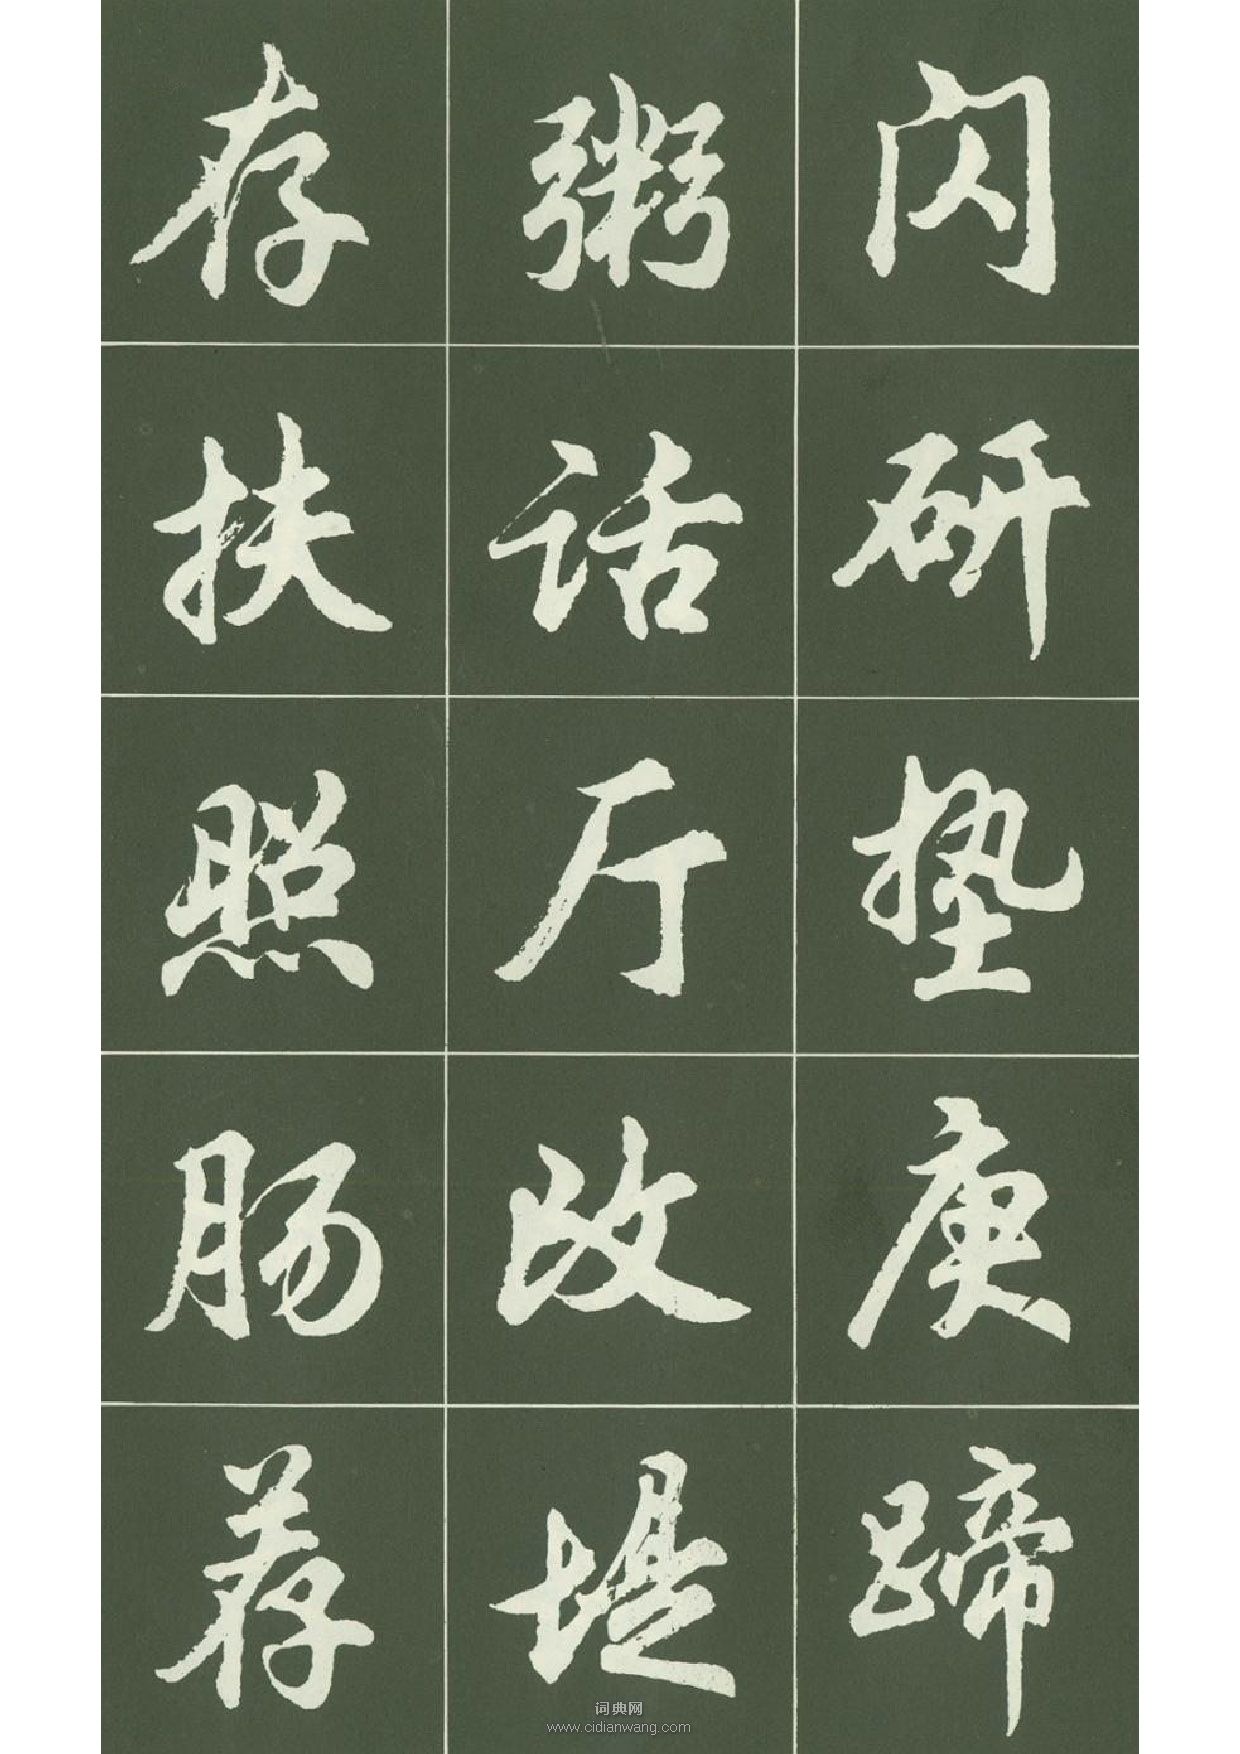 闪研垫庚蹄
粥话厅改堤
存扶照肠荐
词典网
www.cidianwang.com